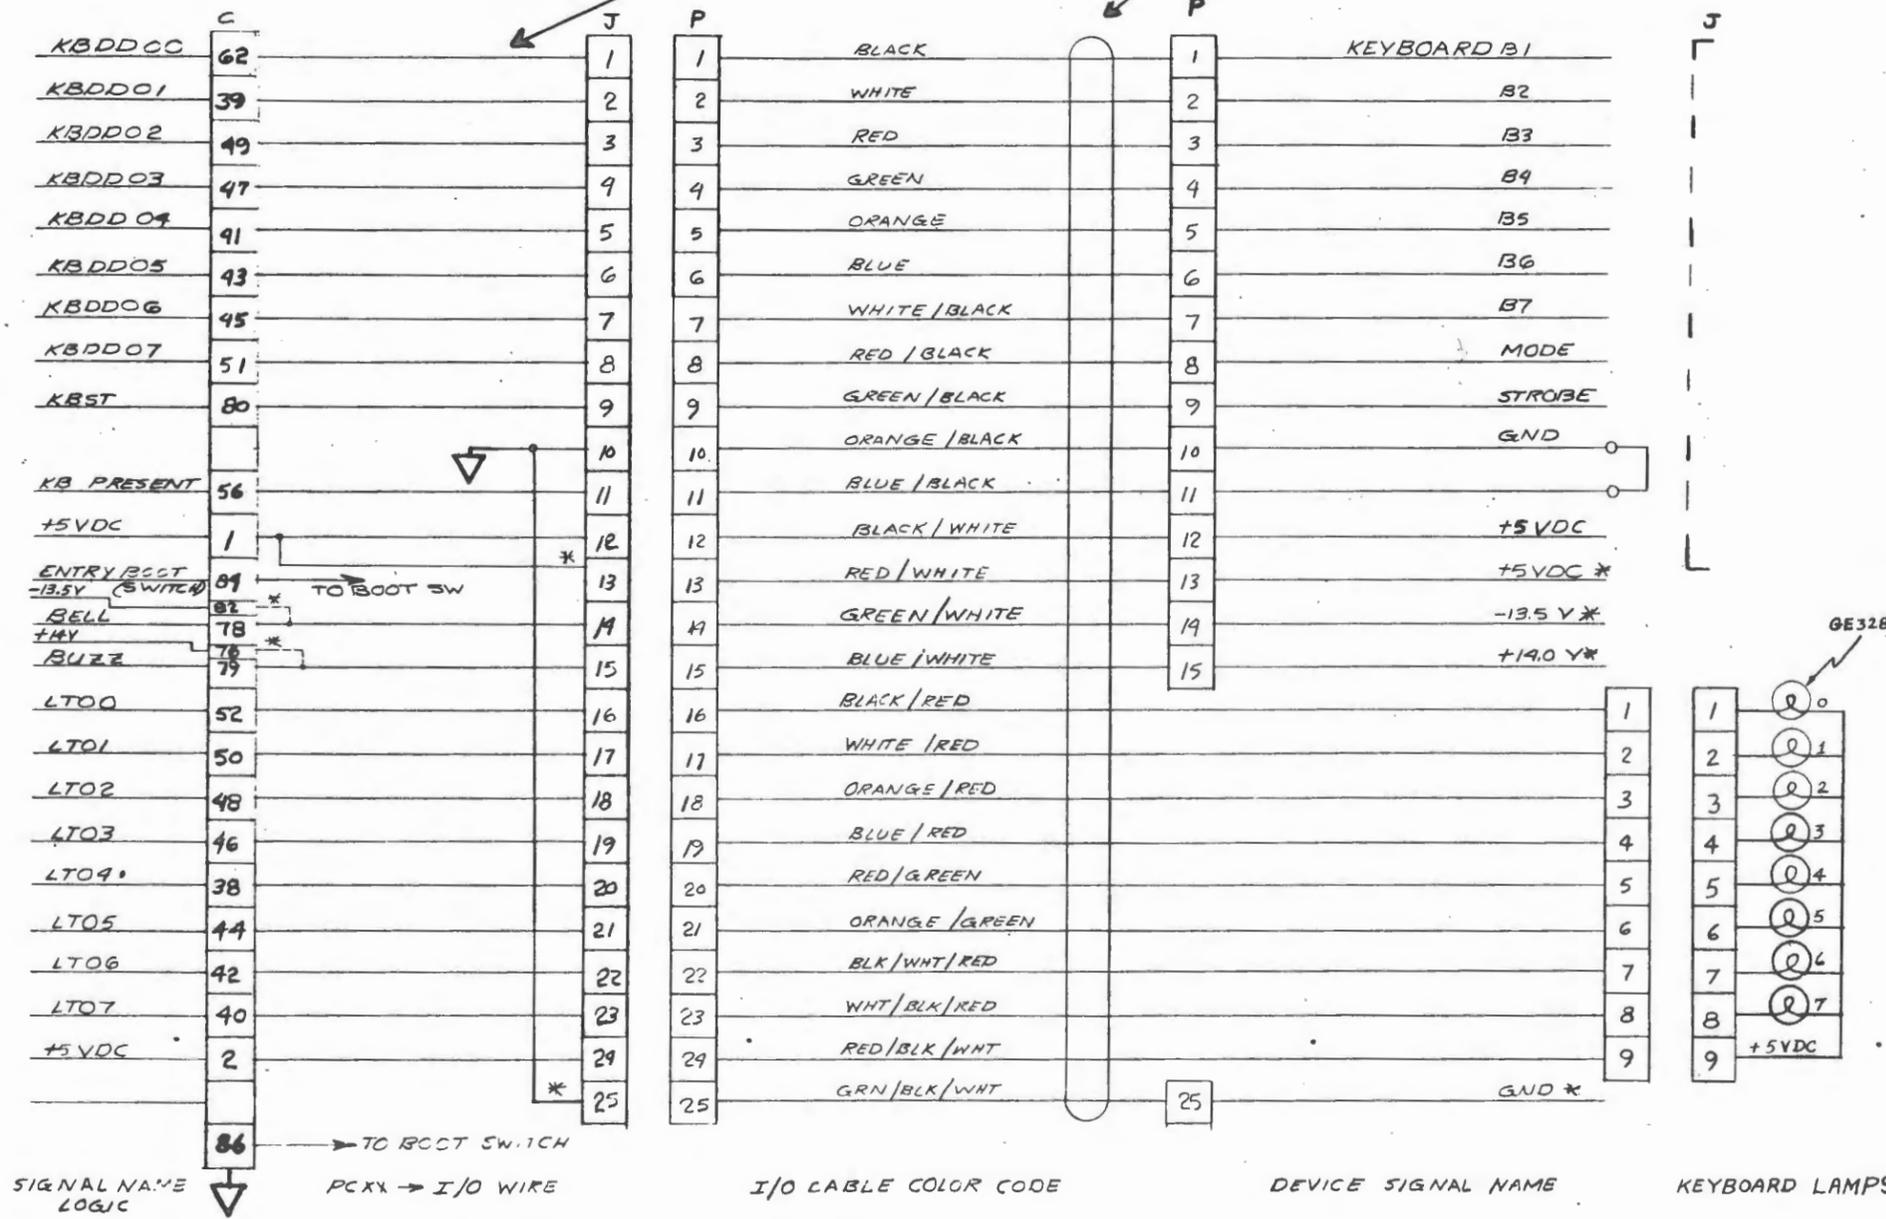 C J P P J
KBDD00 62 1 1 BLACK 1 KEYBOARD B1
KBDD01 39 2 2 WHITE 2 B2
KBDD02 49 3 3 RED 3 B3
KBDD03 47 4 4 GREEN 4 B4
KBDD04 41 5 5 ORANGE 5 B5
KBDD05 43 6 6 BLUE 6 B6
KBDD06 45 7 7 WHITE/BLACK 7 B7
KBDD07 51 8 8 RED/BLACK 8 MODE
KBST 80 9 9 GREEN/BLACK 9 STROBE
10 10 ORANGE/BLACK 10 GND
KB PRESENT 56 11 11 BLUE/BLACK 11
+5VDC 1 12 12 BLACK/WHITE 12 +5VDC
ENTRY BOOT (SWITCH) 84 TO BOOT SW * 13 13 RED/WHITE 13 +5VDC *
-13.5V 82 *
BELL 78 14 14 GREEN/WHITE 14 -13.5 V *
+14V 76 *
BUZZ 79 15 15 BLUE/WHITE 15 +14.0 V*
GE328
LT00 52 16 16 BLACK/RED 1 1 0
LT01 50 17 17 WHITE/RED 2 2 1
LT02 48 18 18 ORANGE/RED 3 3 2
LT03 46 19 19 BLUE/RED 4 4 3
LT04 38 20 20 RED/GREEN 5 5 4
LT05 44 21 21 ORANGE/GREEN 6 6 5
LT06 42 22 22 BLK/WHT/RED 7 7 6
LT07 40 23 23 WHT/BLK/RED 8 8 7
+5VDC 2 24 24 RED/BLK/WHT 9 9 +5VDC
* 25 25 GRN/BLK/WHT 25 GND *
86 TO BOOT SWITCH
SIGNAL NAME LOGIC
PCXX → I/O WIRE
I/O CABLE COLOR CODE
DEVICE SIGNAL NAME
KEYBOARD LAMPS